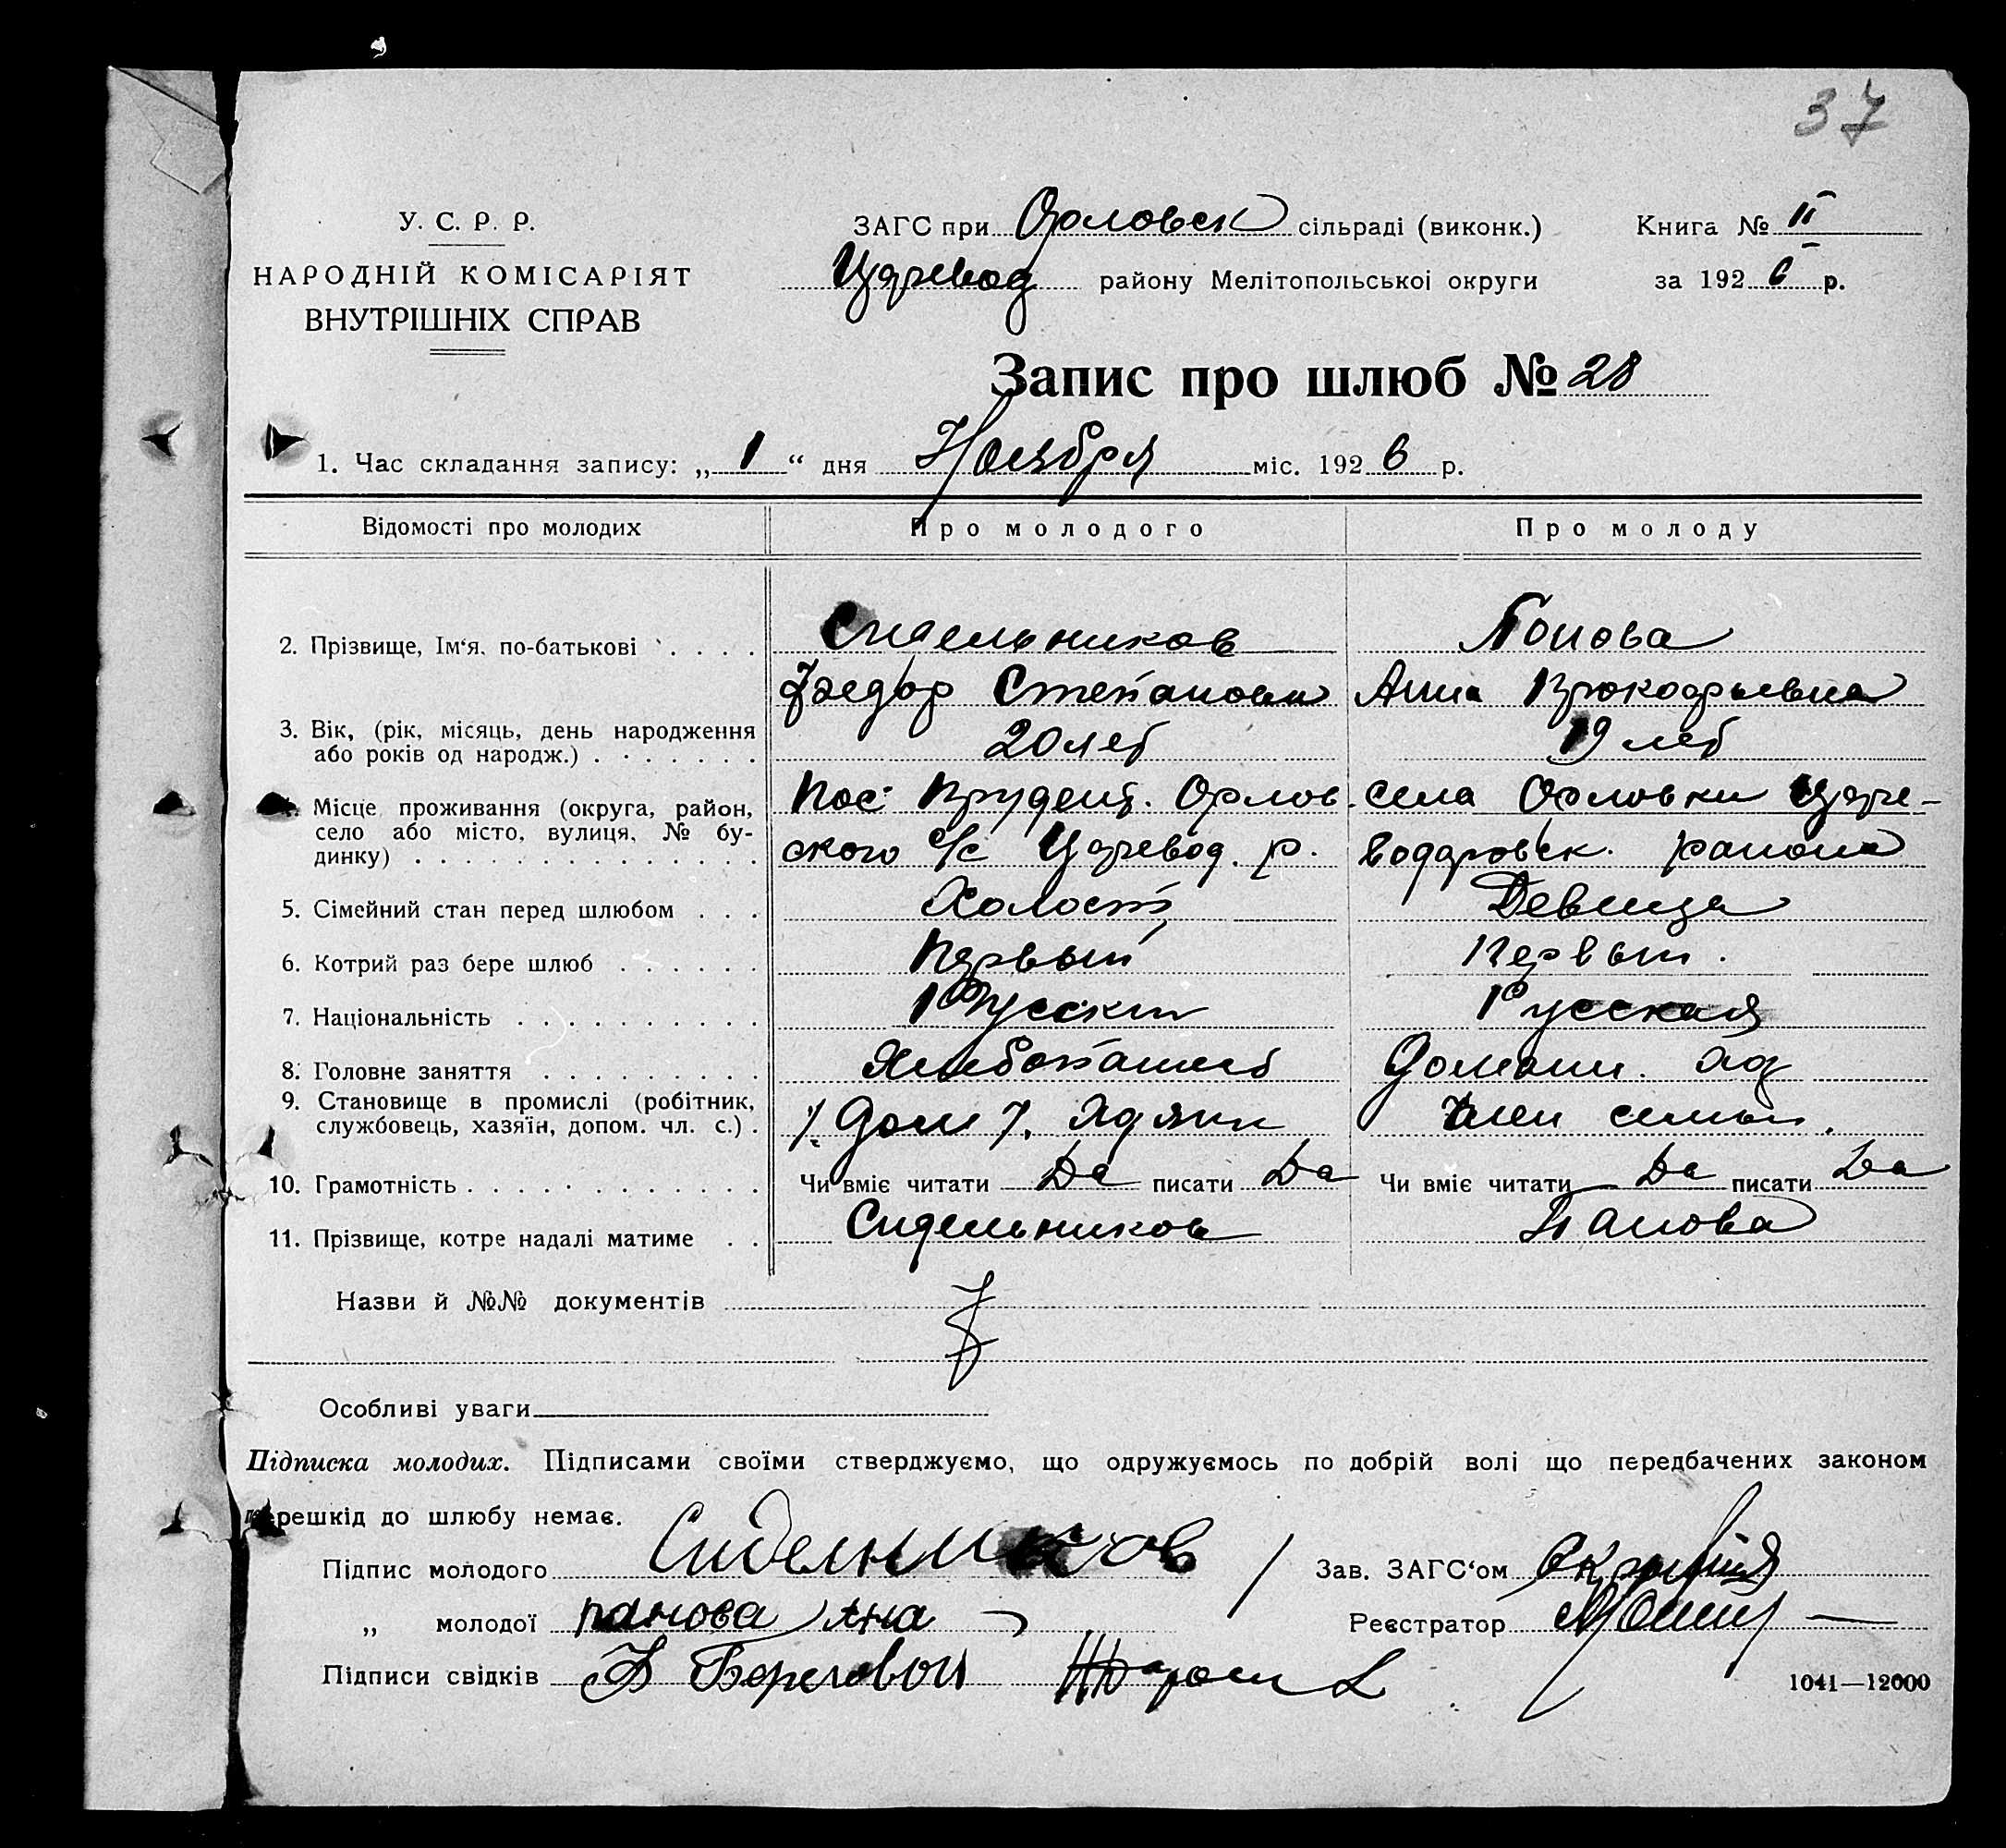 37
У. С. Р. Р.
НАРОДНІЙ КОМІСАРІЯТ
ВНУТРІШНІХ СПРАВ
ЗАГС при Орловск сільраді (виконк.)
Царевод району Мелітопольської округи
Книга № II
за 1926 р.
Запис про шлюб № 28
1. Час складання запису: „ 1 “ дня Ноября міс. 1926 р.
Відомості про молодих Про молодого Про молоду
2. Прізвище, Ім‘я, по-батькові . . . . Сидельников Попова
Федор Степанови Анна Прокофьевна
3. Вік, (рік, місяць, день народження
або років од народж.) . . . . . . . 20 лет 19 лет
4. Місце проживання (округа, район,
село або місто, вулиця, № бу-
динку) . . . . . . . . . . . . . .
Пос. Орлов
ского с/с Царевод. р.
села Орловки Царе-
водаровск. района
5. Сімейний стан перед шлюбом . . . Холост Девица
6. Котрий раз бере шлюб . . . . . . Первый Первый.
7. Національність . . . . . . . . . . Русский Русская
8. Головне заняття . . . . . . . . . Хлебопашеб Домашн.
9. Становище в промислі (робітник,
службовець, хазяїн, допом. чл. с.) . Член семьи.
10. Грамотність . . . . . . . . . . . . Чи вміє читати Да писати Да Чи вміє читати Да писати Да
11. Прізвище, котре надалі матиме . . Сидельников Панова
Назви й №№ документів
Особливі уваги
Підписка молодих. Підписами своїми стверджуємо, що одружуємось по добрій волі що передбачених законом
перешкід до шлюбу немає.
Підпис молодого Сиделников
Зав. ЗАГС‘ом
„ молодої панова Ана
Реєстратор
Підписи свідків
1041—12000